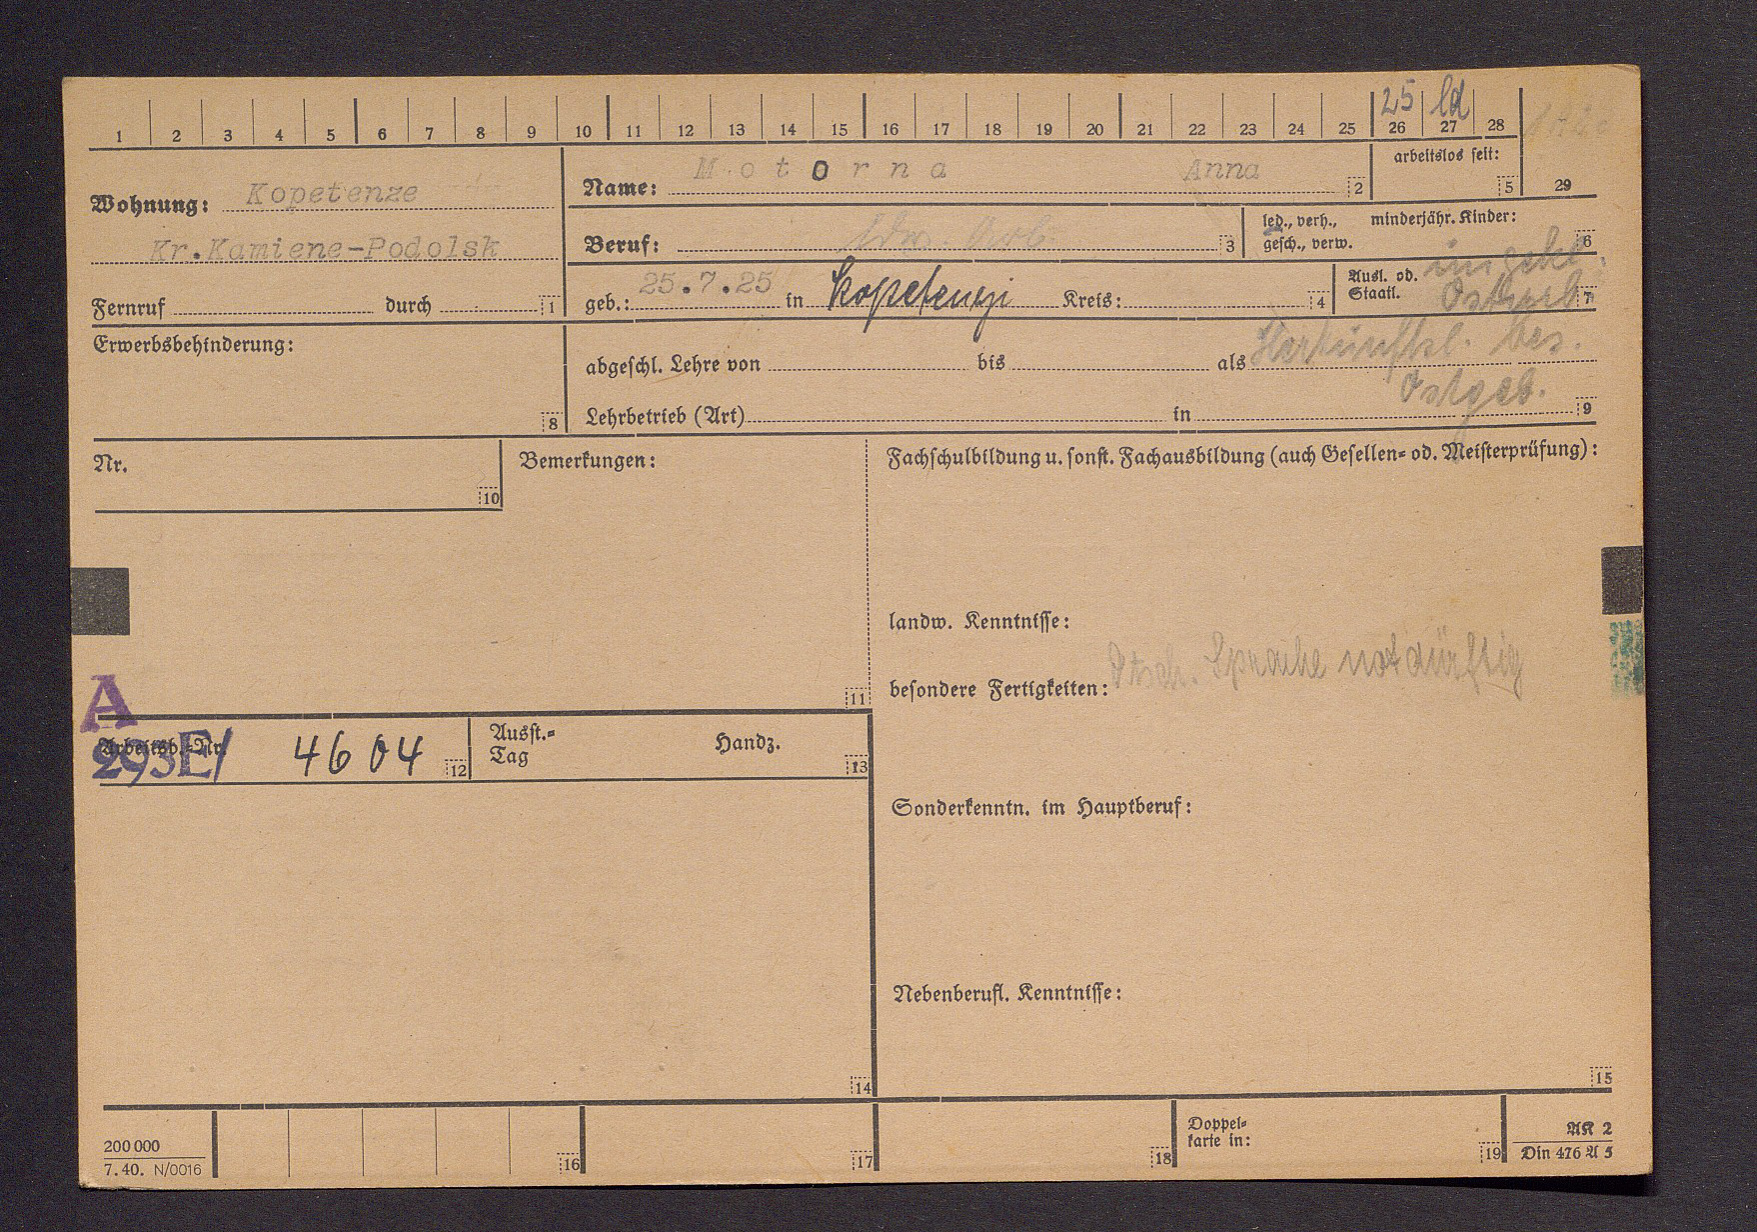 25 ld
1 2 3 4 5 6 7 8 9 10 11 12 13 14 15 16 17 18 19 20 21 22 23 24 25 26 27 28
Wohnung: Kopetenze
Kr.Kamiene-Podolsk
Fernruf durch 1
Name: Motorna Anna 2
arbeitslos seit: 5
29
Beruf: ldw. Arb. 3
led., verh., gesch., verw.
minderjähr. Kinder: 6
geb.: 25.7.25 in Kopetenzi Kreis: 4
Ausl. od. Staatl. ungekl. 7
Erwerbsbehinderung:
8
abgeschl. Lehre von bis als
Herkunftsl. bes.
Ostgeb.
Lehrbetrieb (Art) in 9
Nr.
10
Bemerkungen:
11
Fachschulbildung u. sonst. Fachausbildung (auch Gesellen- od. Meisterprüfung):
landw. Kenntnisse:
besondere Fertigkeiten: Dtsch. Sprache notdürftig
A
Arbeitsb.-Nr.
293E/ 4604 12
Ausst.-
Tag
Handz.
13
Sonderkenntn. im Hauptberuf:
Nebenberufl. Kenntnisse:
14
15
200 000
7. 40. N/0016
16
17
18
Doppel-
karte in:
19
AK 2
Din 476 A 5